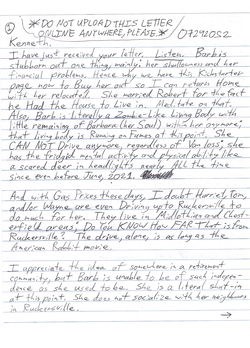 ① *DO NOT UPLOAD THIS LETTER 07292052
ONLINE ANYWHERE, PLEASE.*
Kenneth,
I have just received your letter. Listen. Barb is
stubborn about one thing, mainly: her shallowness and her
financial problems. Hence why we have this Kickstarter
page now to buy her out so I can return home
with her relocated. She married Robert for the fact
he Had the House to Live in. Med. tate on that.
Also, Barb is literally a Zombie-Like Living Body with
little remaining of Barbara (her Soul) within her anymore;
that living body is Running on fumes at this point. She
CAN NOT Drive anymore, regardless of Van loss; she
has the frigid mental activity and physical ability like
a scared deer in headlights nearly ALL the time
since even before June, 2021.
And with Gas Prices these days, I doubt Harriet, Tom,
and/or Wayne are even Driving up to Ruckersville to
do much for her. They live in Midlothian and Chest-
erfield areas; Do You KNOW How FAR That is from
Ruckersville? The drive, alone, is as long as the
American Rabbit movie.
I appreciate the idea of somewhere in a retirement
community, but Barb is unable to be of such indepen-
dence as she used to be. She is a literal shut-in
at this point. She does not socialize with her neighbors
in Ruckersville.
→